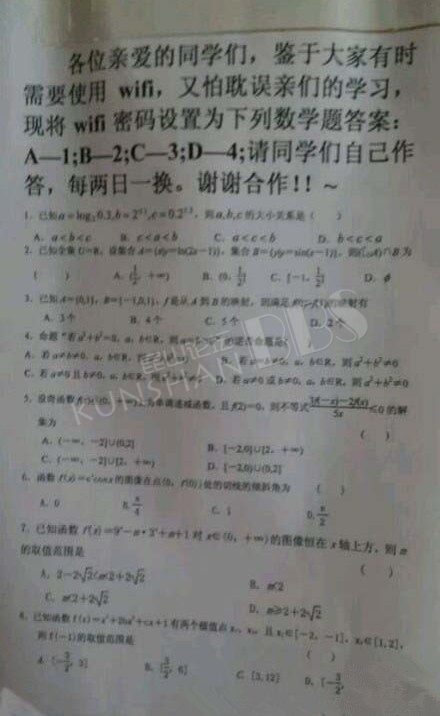 各位亲爱的同学们，鉴于大家有时
需要使用 wifi，又怕耽误亲们的学习，
现将 wifi 密码设置为下列数学题答案：
A—1;B—2;C—3;D—4;请同学们自己作
答，每两日一换。谢谢合作!! ~
1. 已知a=log₂0.3,b= ,c= ，则a,b,c的大小关系是（ ）
A. a<b<c B. c<a<b C. a<c<b D. b<c<a
2. 已知全集U=R，设集合A={x|y=ln(2x-1)}，集合B={y|y=sin(x-1)}，则 ∩B为
( ) A. +∞) B. (0, C. [-1, D. ϕ
3. 已知 B={-1,0,1}，f是从A到B的映射，则满足 的映射有
A. 3个 B. 4个 C. 5个 D. 2个
4. 命题“若a²+b²=0，a，b∈R，则 ”的逆否命题是
A. 若a≠b≠0，a，b∈R， B. 若a=b≠0，a，b∈R，则a²+b²≠0
C. 若a≠0且b≠0，a，b∈R， D. 若a≠0或b≠0，a，b∈R，则a²+b²≠0
5. 设奇函数f(x)在(0，+∞)上为单调递减函数，且f(2)=0，则不等式 ≤0 的解
集为 ( )
A. (-∞，-2]∪(0,2] B. [-2,0]∪[2，+∞)
C. (-∞，-2]∪[2，+∞) D. [-2,0)∪(0,2]
6. 函数 的图像在点(0，f(0))处的切线的倾斜角为 ( )
A. 0 B. π/4 C. 1 D. π/2
7. 已知函数 f(x)=9ˣ-m·3ˣ+m+1 对 x∈(0，+∞)的图像恒在x轴上方，则m
的取值范围是 ( )
A. 2-2√2<m<2+2√2 B. m<2
C. m<2+2√2 D. m≥2+2√2
8. 已知函数 f(x)=x³+ +cx+1 有两个极值点x₁，x₂，且x₁∈[-2，-1]，x₂∈[1,2]，
则f(-1)的取值范围是 ( )
A. [-3/2，3] B. [3/2，6] C. [3,12] D. [-3/2，
昆山论坛BBS
KUNSHAN